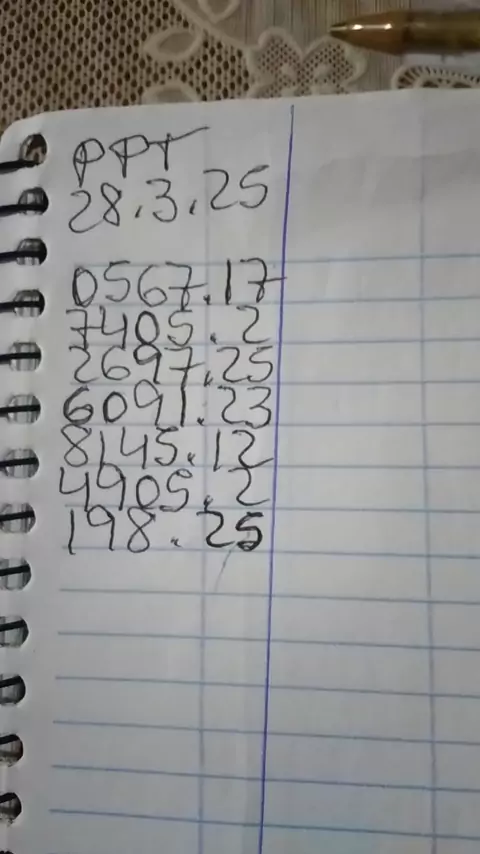 PPT
28.3.25
0567.17
7405.2
2697.25
6091.23
8145.12
4905.2
198.25